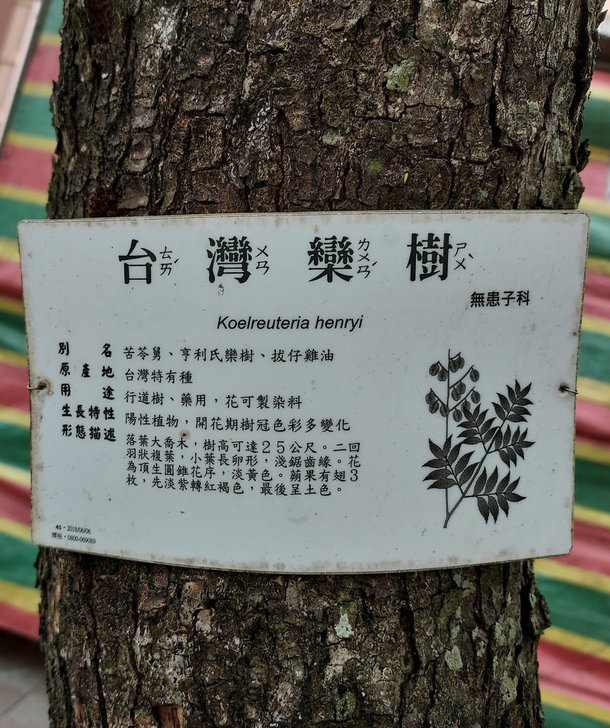 台灣欒樹
ㄊㄞˊ ㄨㄢ ㄌㄨㄢˊ ㄕㄨˋ
無患子科
Koelreuteria henryi
別名 苦苓舅、亨利氏欒樹、拔仔雞油
原產地 台灣特有種
用途 行道樹、藥用,花可製染料
生長特性 陽性植物,開花期樹冠色彩多變化
形態描述 落葉大喬木,樹高可達25公尺。二回
羽狀複葉,小葉長卵形,淺鋸齒緣。花
為頂生圓錐花序,淡黃色。蒴果有翅3
枚,先淡紫轉紅褐色,最後呈土色。
45,2016/06/06
0800-069089